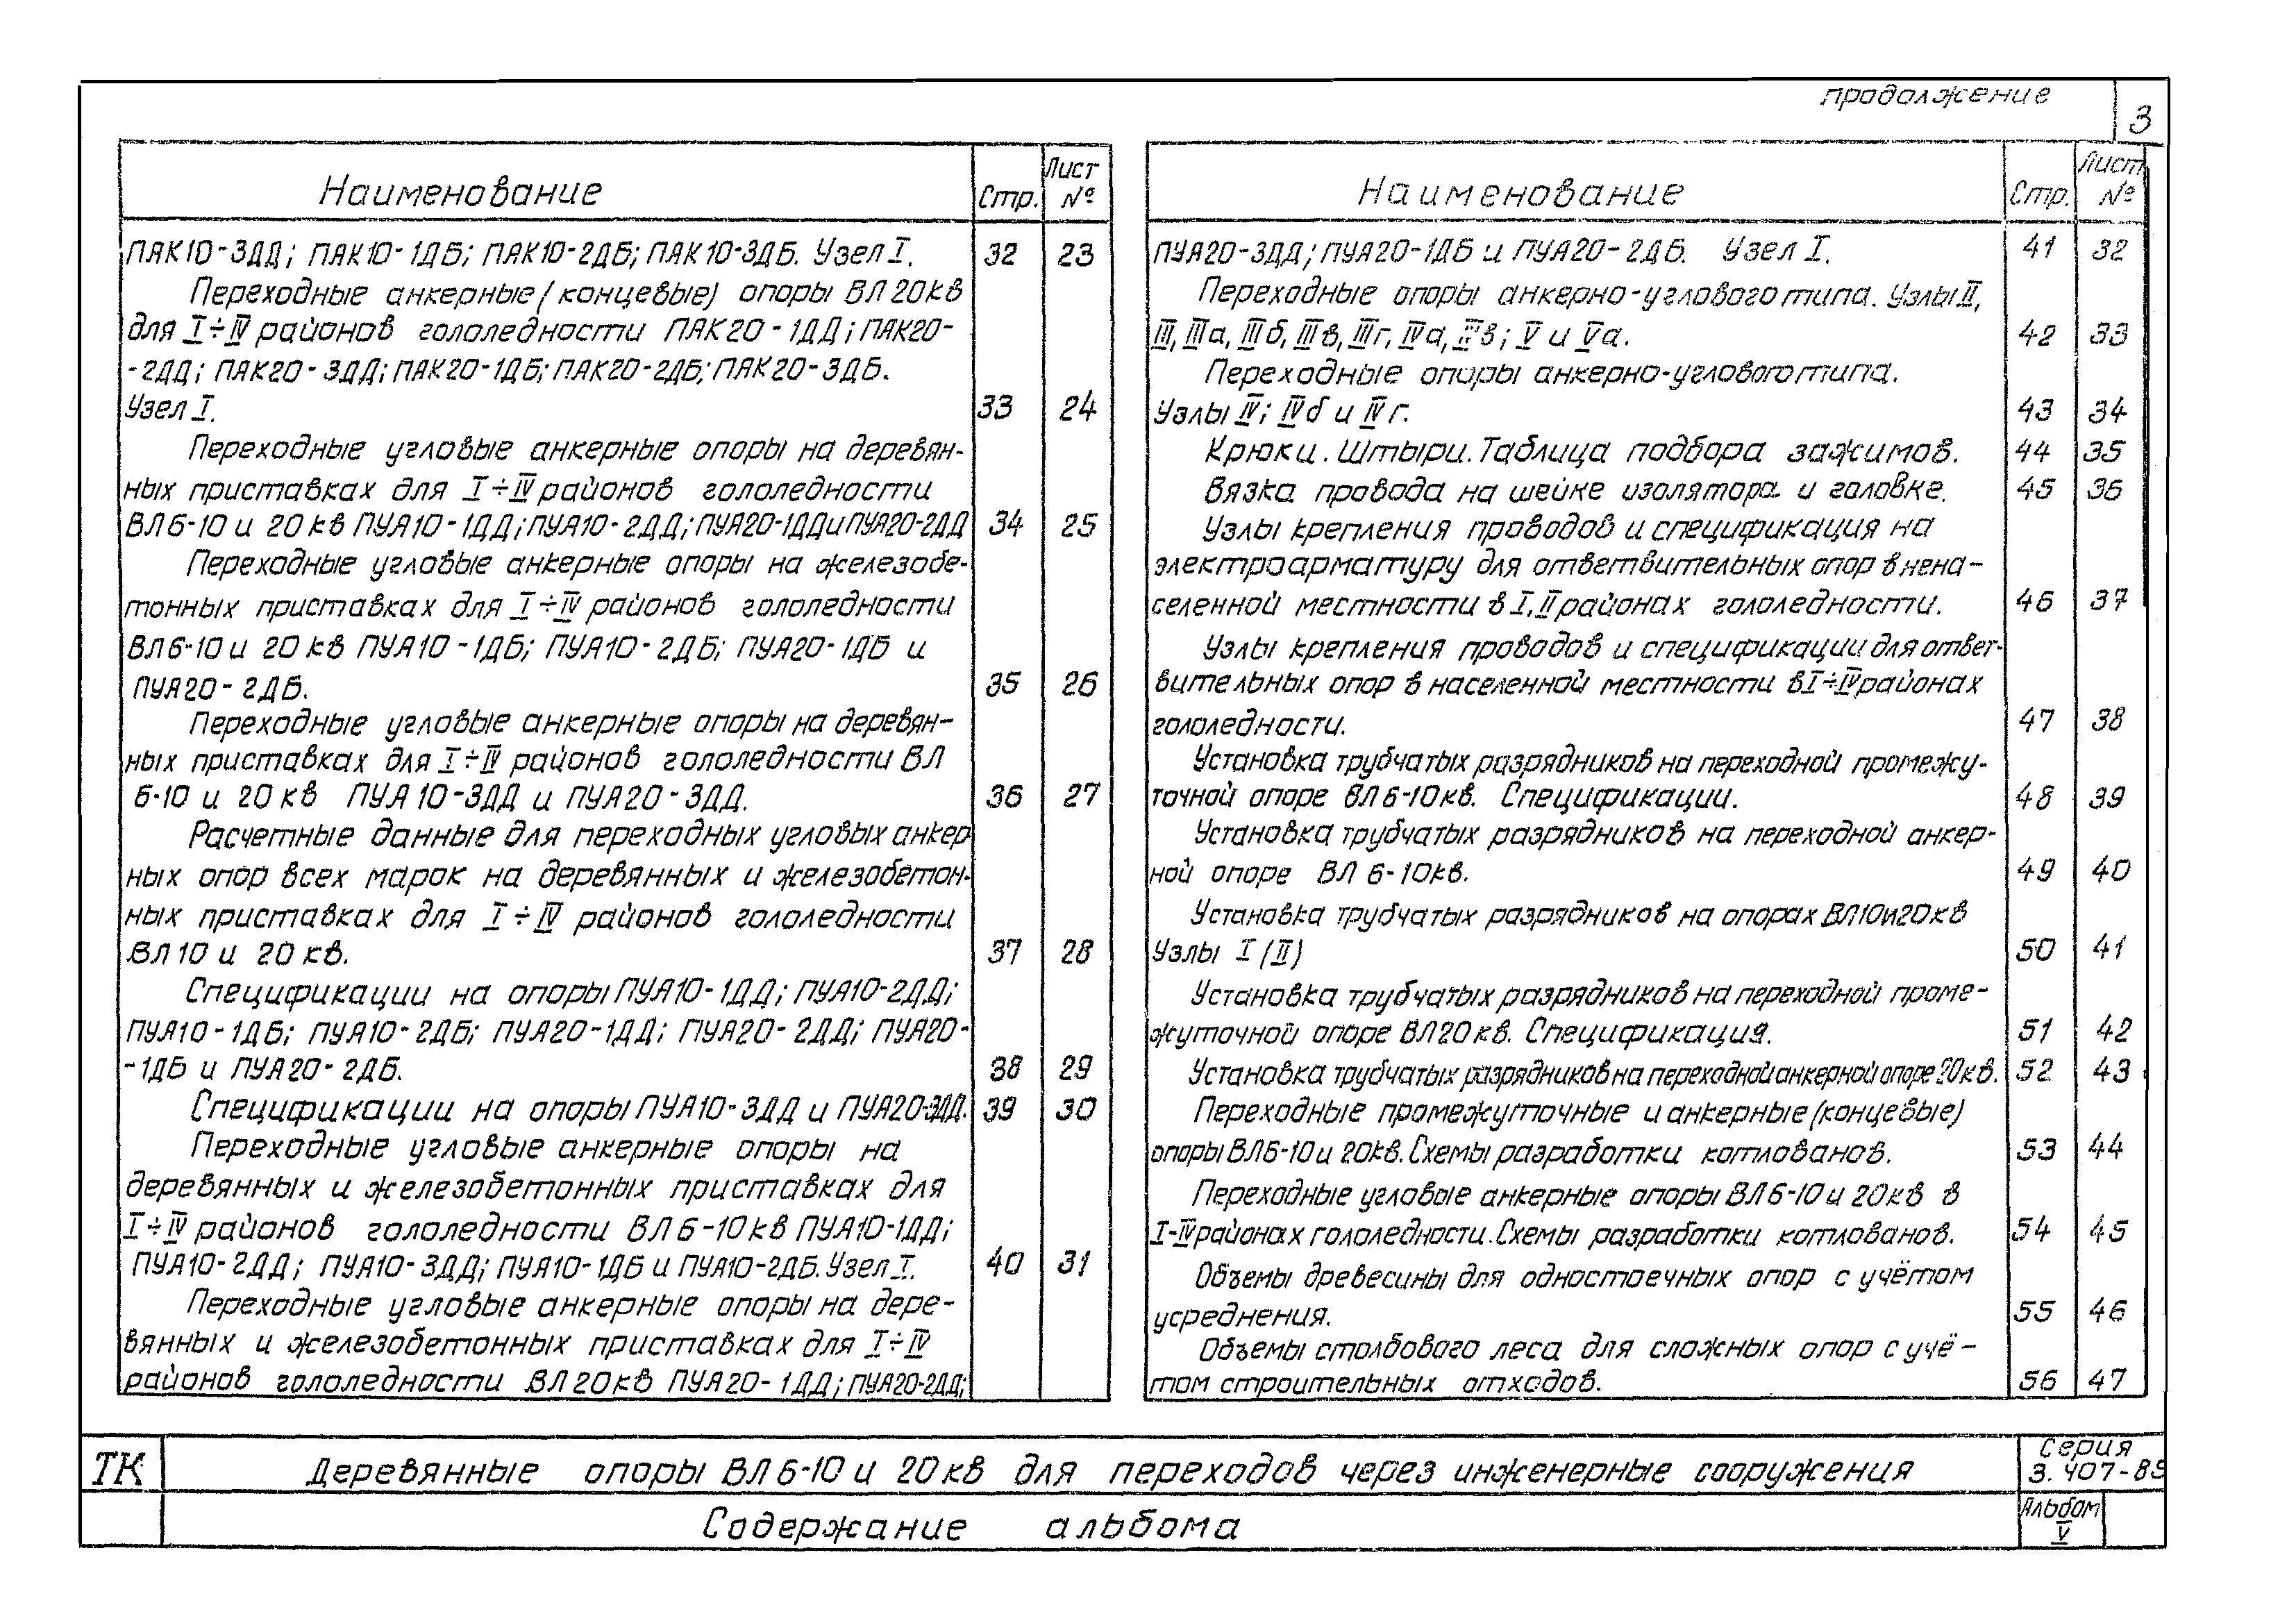 продолжение
3
Наименование Стр. Лист №
ПАК10-3ДД; ПАК10-1ДБ; ПАК10-2ДБ; ПАК10-3ДБ. Узел I. 32 23
Переходные анкерные (концевые) опоры ВЛ 20кв
для I÷IV районов гололедности ПАК20-1ДД; ПАК20-
-2ДД; ПАК20-3ДД; ПАК20-1ДБ; ПАК20-2ДБ; ПАК20-3ДБ.
Узел I. 33 24
Переходные угловые анкерные опоры на деревян-
ных приставках для I÷IV районов гололедности
ВЛ 6-10 и 20 кв ПУА10-1ДД; ПУА10-2ДД; ПУА20-1ДД и ПУА20-2ДД 34 25
Переходные угловые анкерные опоры на железобе-
тонных приставках для I÷IV районов гололедности
ВЛ 6-10 и 20 кв ПУА10-1ДБ; ПУА10-2ДБ; ПУА20-1ДБ и
ПУА20-2ДБ. 35 26
Переходные угловые анкерные опоры на деревян-
ных приставках для I÷IV районов гололедности ВЛ
6-10 и 20 кв ПУА10-3ДД и ПУА20-3ДД. 36 27
Расчетные данные для переходных угловых анкер
ных опор всех марок на деревянных и железобетон-
ных приставках для I÷IV районов гололедности
ВЛ 10 и 20 кв. 37 28
Спецификации на опоры ПУА10-1ДД; ПУА10-2ДД;
ПУА10-1ДБ; ПУА10-2ДБ; ПУА20-1ДД; ПУА20-2ДД; ПУА20-
-1ДБ и ПУА20-2ДБ. 38 29
Спецификации на опоры ПУА10-3ДД и ПУА20-3ДД. 39 30
Переходные угловые анкерные опоры на
деревянных и железобетонных приставках для
I÷IV районов гололедности ВЛ 6-10кв ПУА10-1ДД;
ПУА10-2ДД; ПУА10-3ДД; ПУА10-1ДБ и ПУА10-2ДБ. Узел I. 40 31
Переходные угловые анкерные опоры на дере-
вянных и железобетонных приставках для I÷IV
районов гололедности ВЛ 20кв ПУА20-1ДД; ПУА20-2ДД;
Наименование Стр. Лист №
ПУА20-3ДД; ПУА20-1ДБ и ПУА20-2ДБ. Узел I. 41 32
Переходные опоры анкерно-углового типа. Узлы II,
III, IIIа, IIIб, IIIв, IIIг, IVа, IVв; V и Vа. 42 33
Переходные опоры анкерно-углового типа.
Узлы IV; IVб и IVг. 43 34
Крюки. Штыри. Таблица подбора зажимов. 44 35
Вязка провода на шейке изолятора и головке. 45 36
Узлы крепления проводов и спецификация на
электроарматуру для ответвительных опор в нена-
селенной местности в I, II районах гололедности. 46 37
Узлы крепления проводов и спецификации для ответ-
вительных опор в населенной местности в I÷IV районах
гололедности. 47 38
Установка трубчатых разрядников на переходной промежу-
точной опоре ВЛ 6-10кв. Спецификации. 48 39
Установка трубчатых разрядников на переходной анкер-
ной опоре ВЛ 6-10кв. 49 40
Установка трубчатых разрядников на опорах ВЛ10и20кв
Узлы I (II) 50 41
Установка трубчатых разрядников на переходной проме-
жуточной опоре ВЛ 20 кв. Спецификация. 51 42
Установка трубчатых разрядников на переходной анкерной опоре 20кв. 52 43
Переходные промежуточные и анкерные (концевые)
опоры ВЛ 6-10 и 20кв. Схемы разработки котлованов. 53 44
Переходные угловые анкерные опоры ВЛ 6-10 и 20кв в
I-IV районах гололедности. Схемы разработки котлованов. 54 45
Объемы древесины для одностоечных опор с учётом
усреднения. 55 46
Объемы столбового леса для сложных опор с учё-
том строительных отходов. 56 47
ТК Деревянные опоры ВЛ 6-10 и 20 кв для переходов через инженерные сооружения Серия 3.407-85
Содержание альбома Альбом V